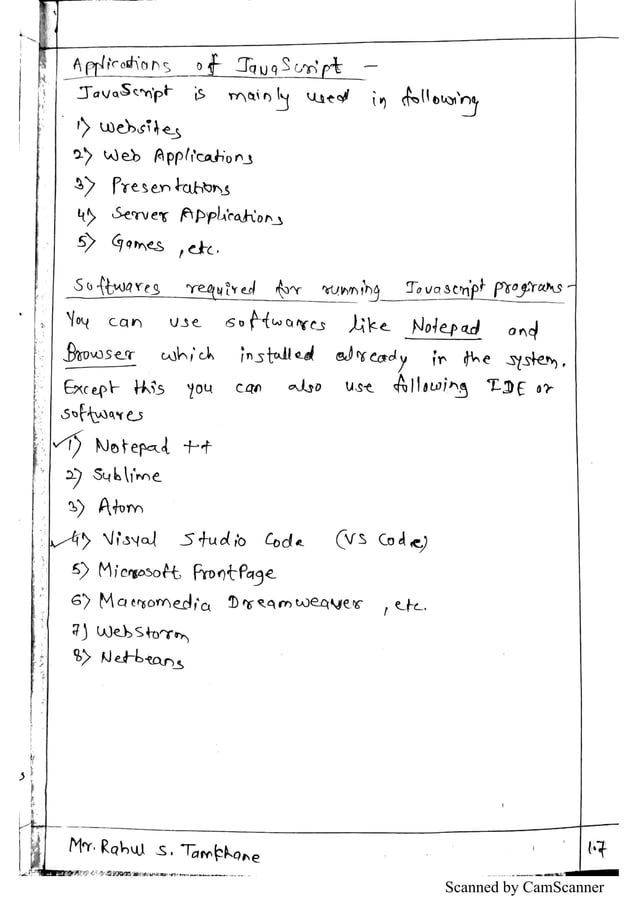 Applications of JavaScript -
JavaScript is mainly used in following
1) Websites
2) Web Applications
3) Presentations
4) Server Applications
5) Games, etc.
Softwares required for running Javascript programs-
You can use softwares like Notepad and
Browser which installed already in the system.
Except this you can also use following IDE or
softwares
1) Notepad ++
2) Sublime
3) Atom
4) Visual Studio Code (VS Code)
5) Microsoft FrontPage
6) Macromedia Dreamweaver, etc.
7) WebStorm
8) Netbeans
Mr. Rahul S. Tamkhane
1.7
Scanned by CamScanner